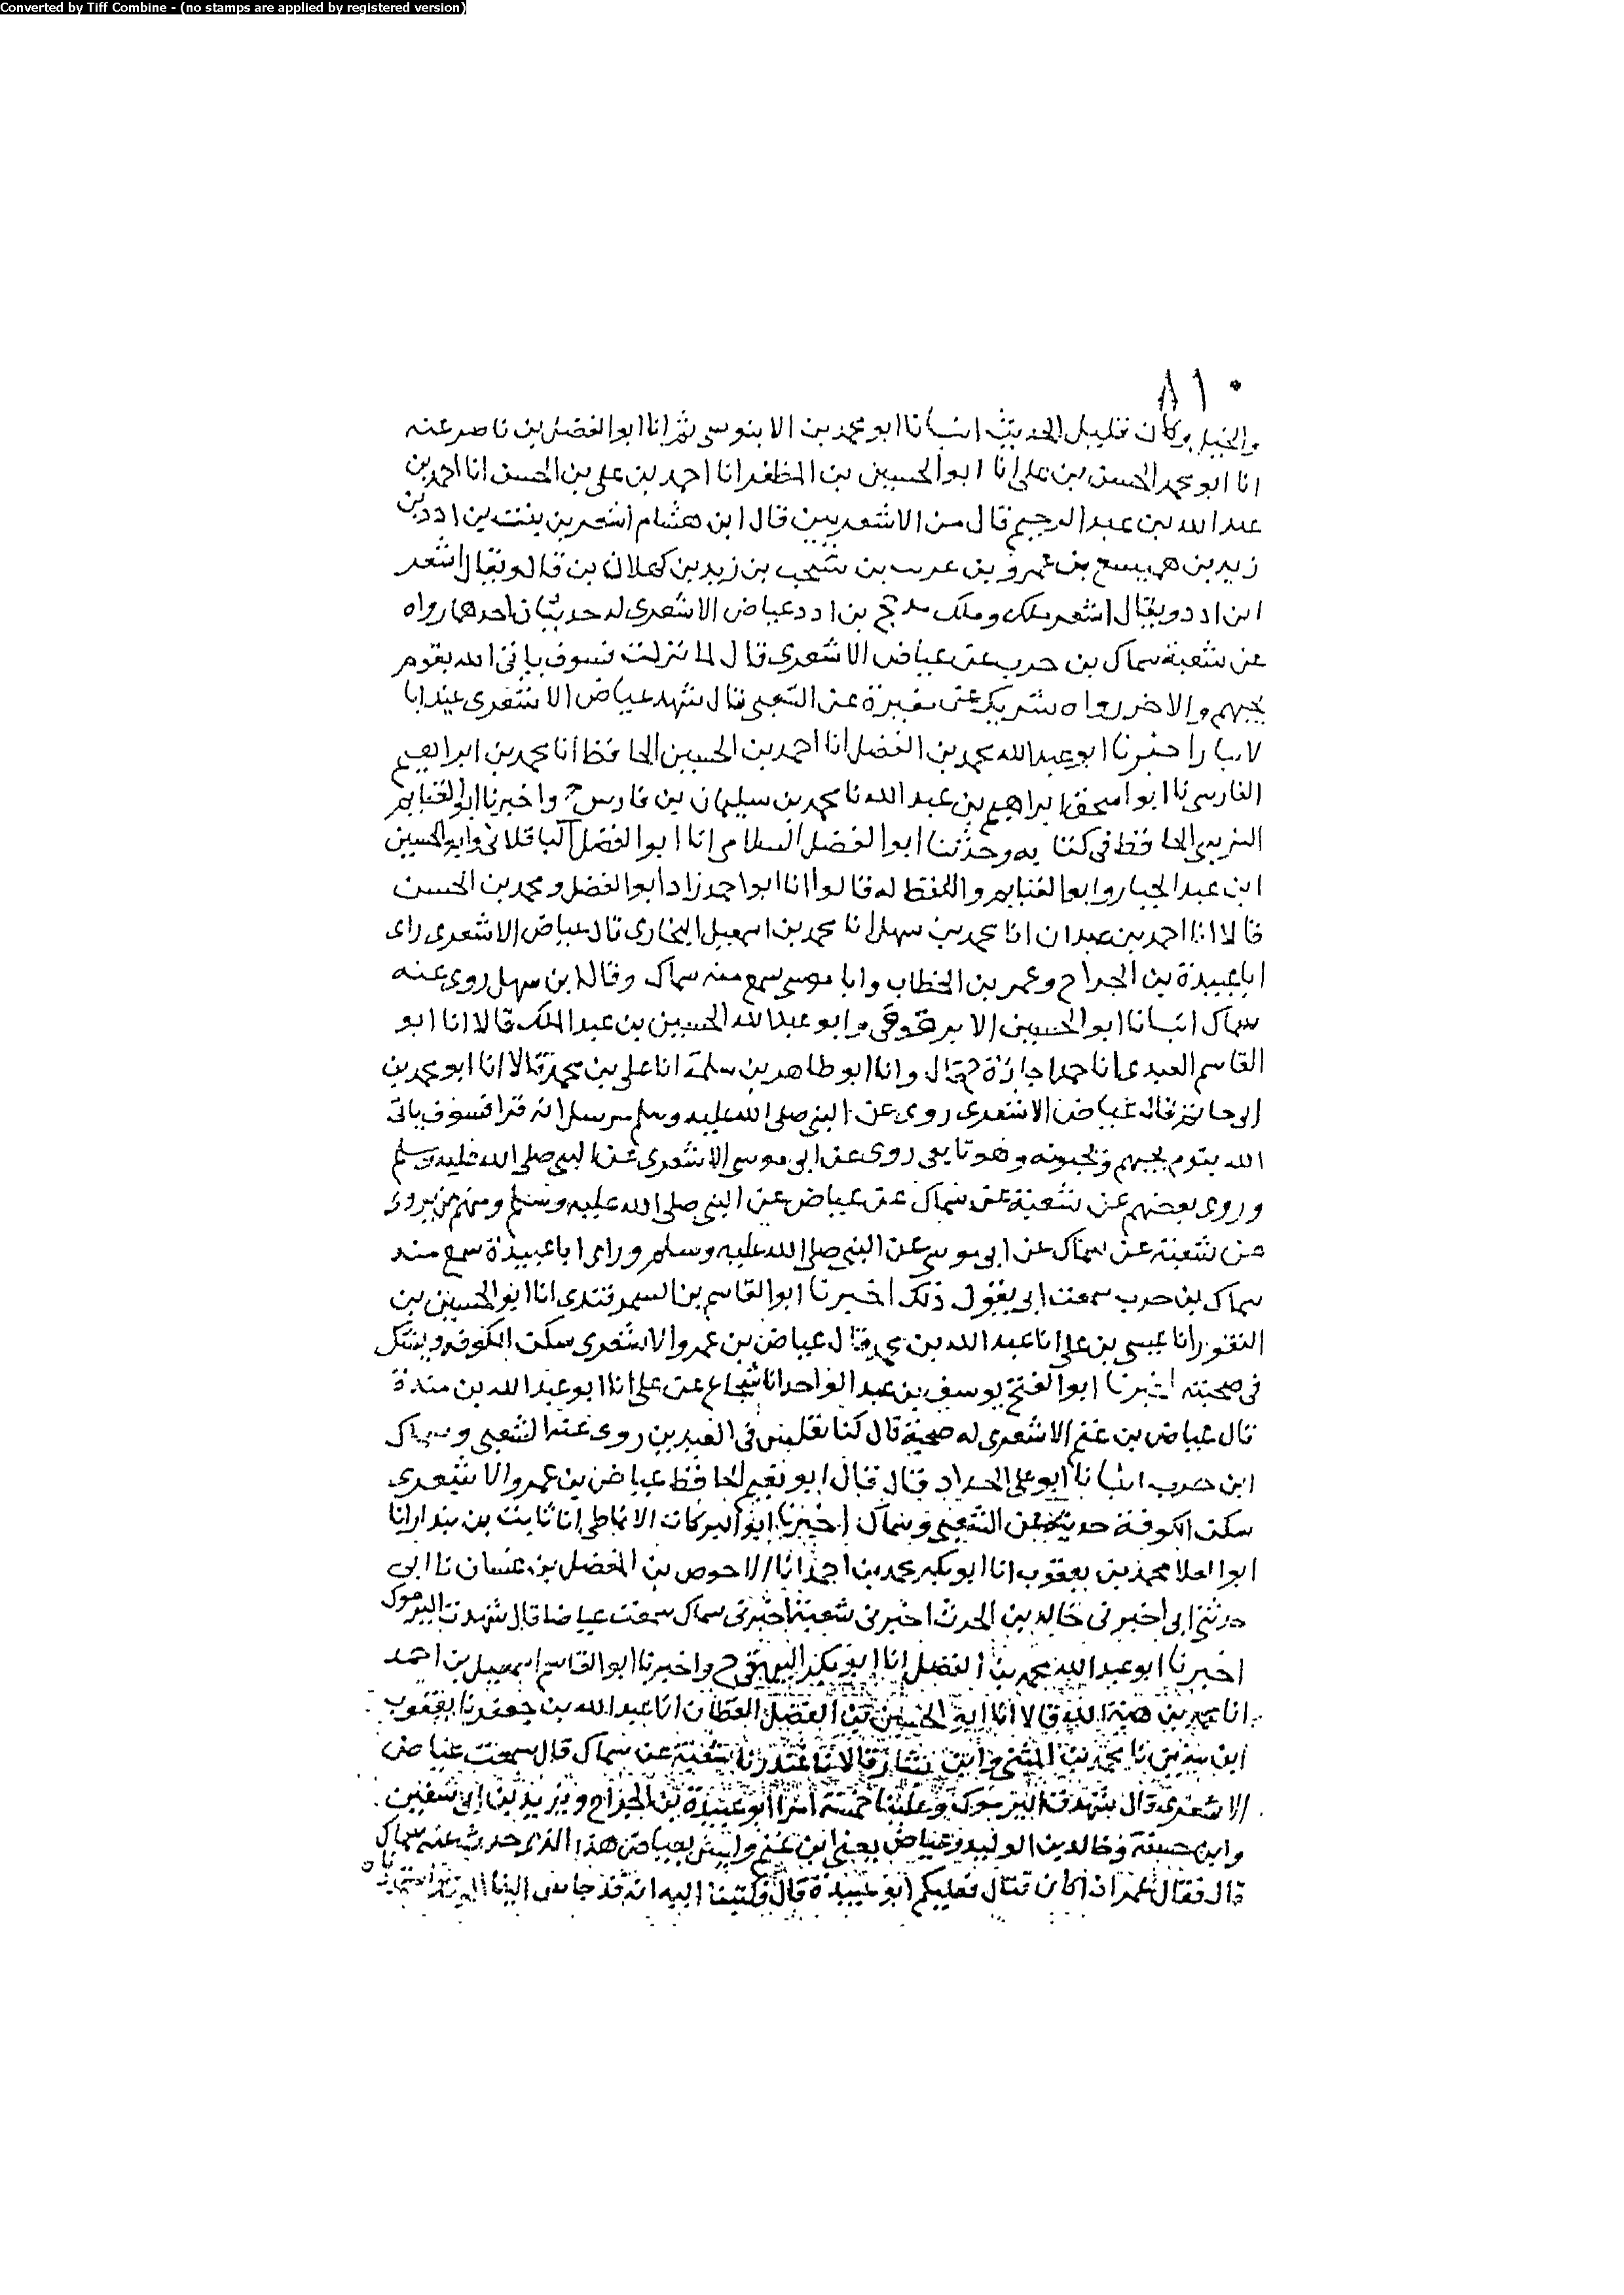 Converted by Tiff Combine - (no stamps are applied by registered version)
٨١٠
والخيل وكان قليل الحديث انبانا ابو محمد بن الابنوسى ثم انا ابو الفضل بن ناصر عنه
انا ابو محمد الحسن بن على انا ابو الحسين بن المظفر انا احمد بن على بن الحسن انا احمد بن
عبد الله بن عبد الرحيم قال من الاشعريين قال ابن هشام اشعر بن بنت بن ادد بن
زيد بن هميسع بن عمرو بن عريب بن يشجب بن زيد بن كهلان بن قال ويقال اشعر
ابن ادد ويقال اشعر ملك وملك مذحج بن ادد عياض الاشعرى له حديثان احدهما رواه
عن شعبة سماك بن حرب عن عياض الاشعرى قال لما نزلت فسوف ياتى الله بقوم
يحبهم والاخر رواه شريك عن مغيرة عن الشعبى قال شهد عياض الاشعرى عيدا با
لانبار اخبرنا ابو عبد الله محمد بن الفضل انا احمد بن الحسين الحافظ انا محمد بن ابراهيم
الفارسى نا ابو اسحق ابراهيم بن عبد الله نا محمد بن سليمان بن فارس ح واخبرنا ابو الغنايم
النرسى الحافظ فى كتابه وحدثنا ابو الفضل السلامى انا ابو الفضل الباقلانى وابو الحسين
ابن عبد الجبار وابو الغنايم واللفظ له قالوا انا ابو احمد زاد ابو الفضل ومحمد بن الحسن
قالا انا احمد بن عبدان انا محمد بن سهل انا محمد بن اسمعيل البخارى قال عياض الاشعرى راى
ابا عبيدة بن الجراح وعمر بن الخطاب وابا موسى سمع منه سماك وقال ابن سهل روى عنه
سماك انبانا ابو الحسين الابرقوهى وابو عبد الله الحسين بن عبد الملك قالا انا ابو
القاسم العبدى انا حمد اجازة ح قال وانا ابو طاهر بن سلمة انا على بن محمد قالا انا ابو محمد بن
ابى حاتم قال عياض الاشعرى روى عن النبى صلى الله عليه وسلم مرسل انه قرا فسوف ياتى
الله بقوم يحبهم ويحبونه وهو تابعى روى عن ابى موسى الاشعرى عن النبى صلى الله عليه وسلم
وروى بعضهم عن شعبة عن سماك عن عياض عن النبى صلى الله عليه وسلم ومنهم من يروى
عن شعبة عن سماك عن ابى موسى عن النبى صلى الله عليه وسلم وراى ابا عبيدة سمع منه
سماك بن حرب سمعت ابى يقول ذلك اخبرنا ابو القاسم بن السمرقندى انا ابو الحسين بن
النقور انا عيسى بن على انا عبد الله بن محمد قال عياض بن عمرو الاشعرى سكن الكوفة ويشك
فى صحبته اخبرنا ابو الفتح يوسف بن عبد الواحد انا شجاع عن على انا ابو عبد الله بن مندة
قال عياض بن غنم الاشعرى له صحبة قال كنا نقلس فى العيدين روى عنه الشعبى وسماك
ابن حرب انبانا ابو على الحداد قال قال ابو نعيم الحافظ عياض بن عمرو الاشعرى
سكن الكوفة حديثه عن الشعبى وسماك اخبرنا ابو البركات الانماطى انا ثابت بن بندار انا
ابو العلا محمد بن يعقوب انا ابو بكر محمد بن احمد انا الاحوص بن المفضل بن غسان نا ابى
حدثنى ابى اخبرنى خالد بن الحرث اخبرنى شعبة اخبرنى سماك سمعت عياضا قال شهدت اليرموك
اخبرنا ابو عبد الله محمد بن الفضل انا ابو بكر البيهقى ح واخبرنا ابو القاسم اسمعيل بن احمد
انا محمد بن هبة الله قالا انا ابو الحسين بن الفضل القطان انا عبد الله بن جعفر نا يعقوب
ابن سفين نا محمد بن المثنى وابن بشار قالا نا غندر نا شعبة عن سماك قال سمعت عياض
الاشعرى قال شهدت اليرموك وعلينا خمسة امرا ابو عبيدة بن الجراح ويزيد بن ابى سفين
وابن حسنة وخالد بن الوليد وعياض يعنى ابن غنم وليس بعياض هذا الذى حدث عنه سماك
قال فقال عمر اذا كان قتال فعليكم ابو عبيدة قال فكتبنا اليه انه قد جاش الينا